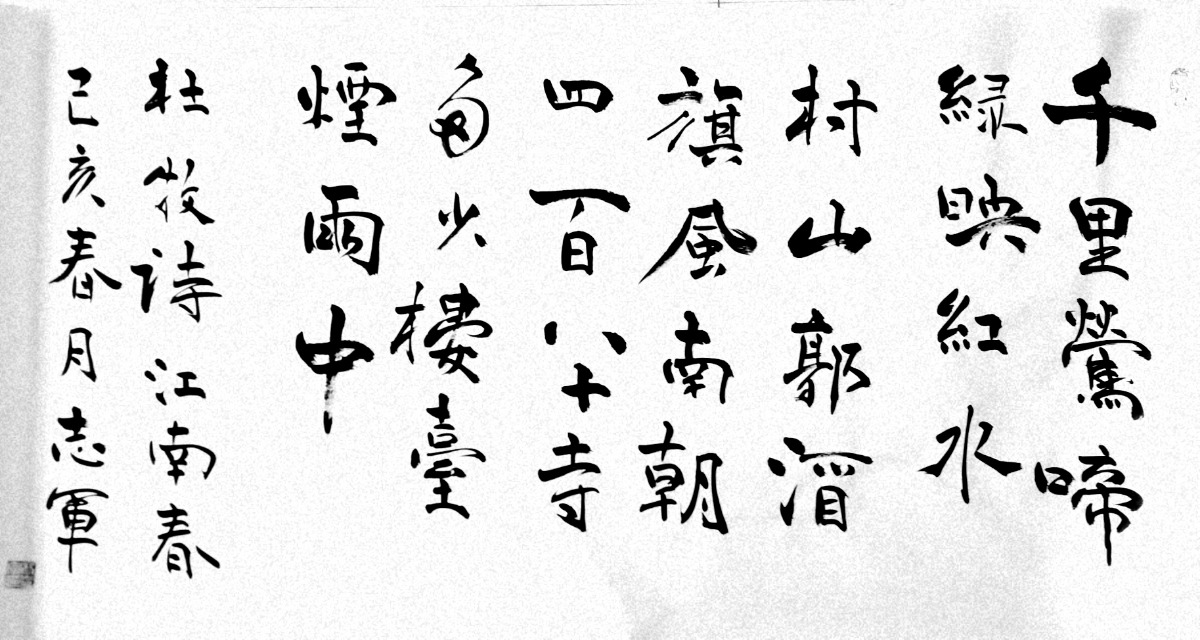 千里鶯啼
緑映紅水
村山郭酒
旗風南朝
四百八十寺
多少樓臺
煙雨中
杜牧詩江南春
己亥春月志軍